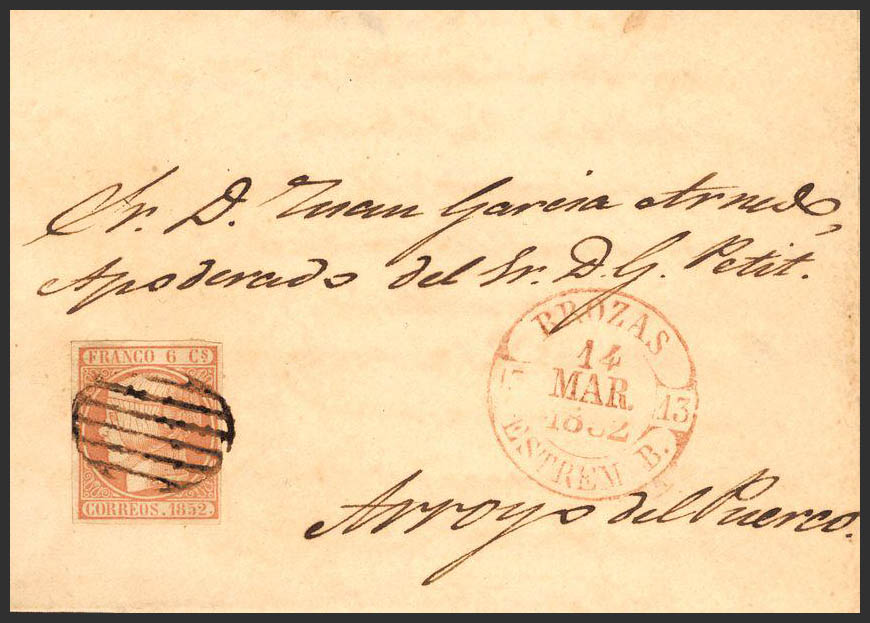 Sr. D. Juan Garcia Arnedo,
Apoderado del Sr. D. G. Petit.
FRANCO 6 Cs
CORREOS. 1852.
BROZAS
14
MAR.
1852
13
ESTREM. B.
Arroyo del Puerco.